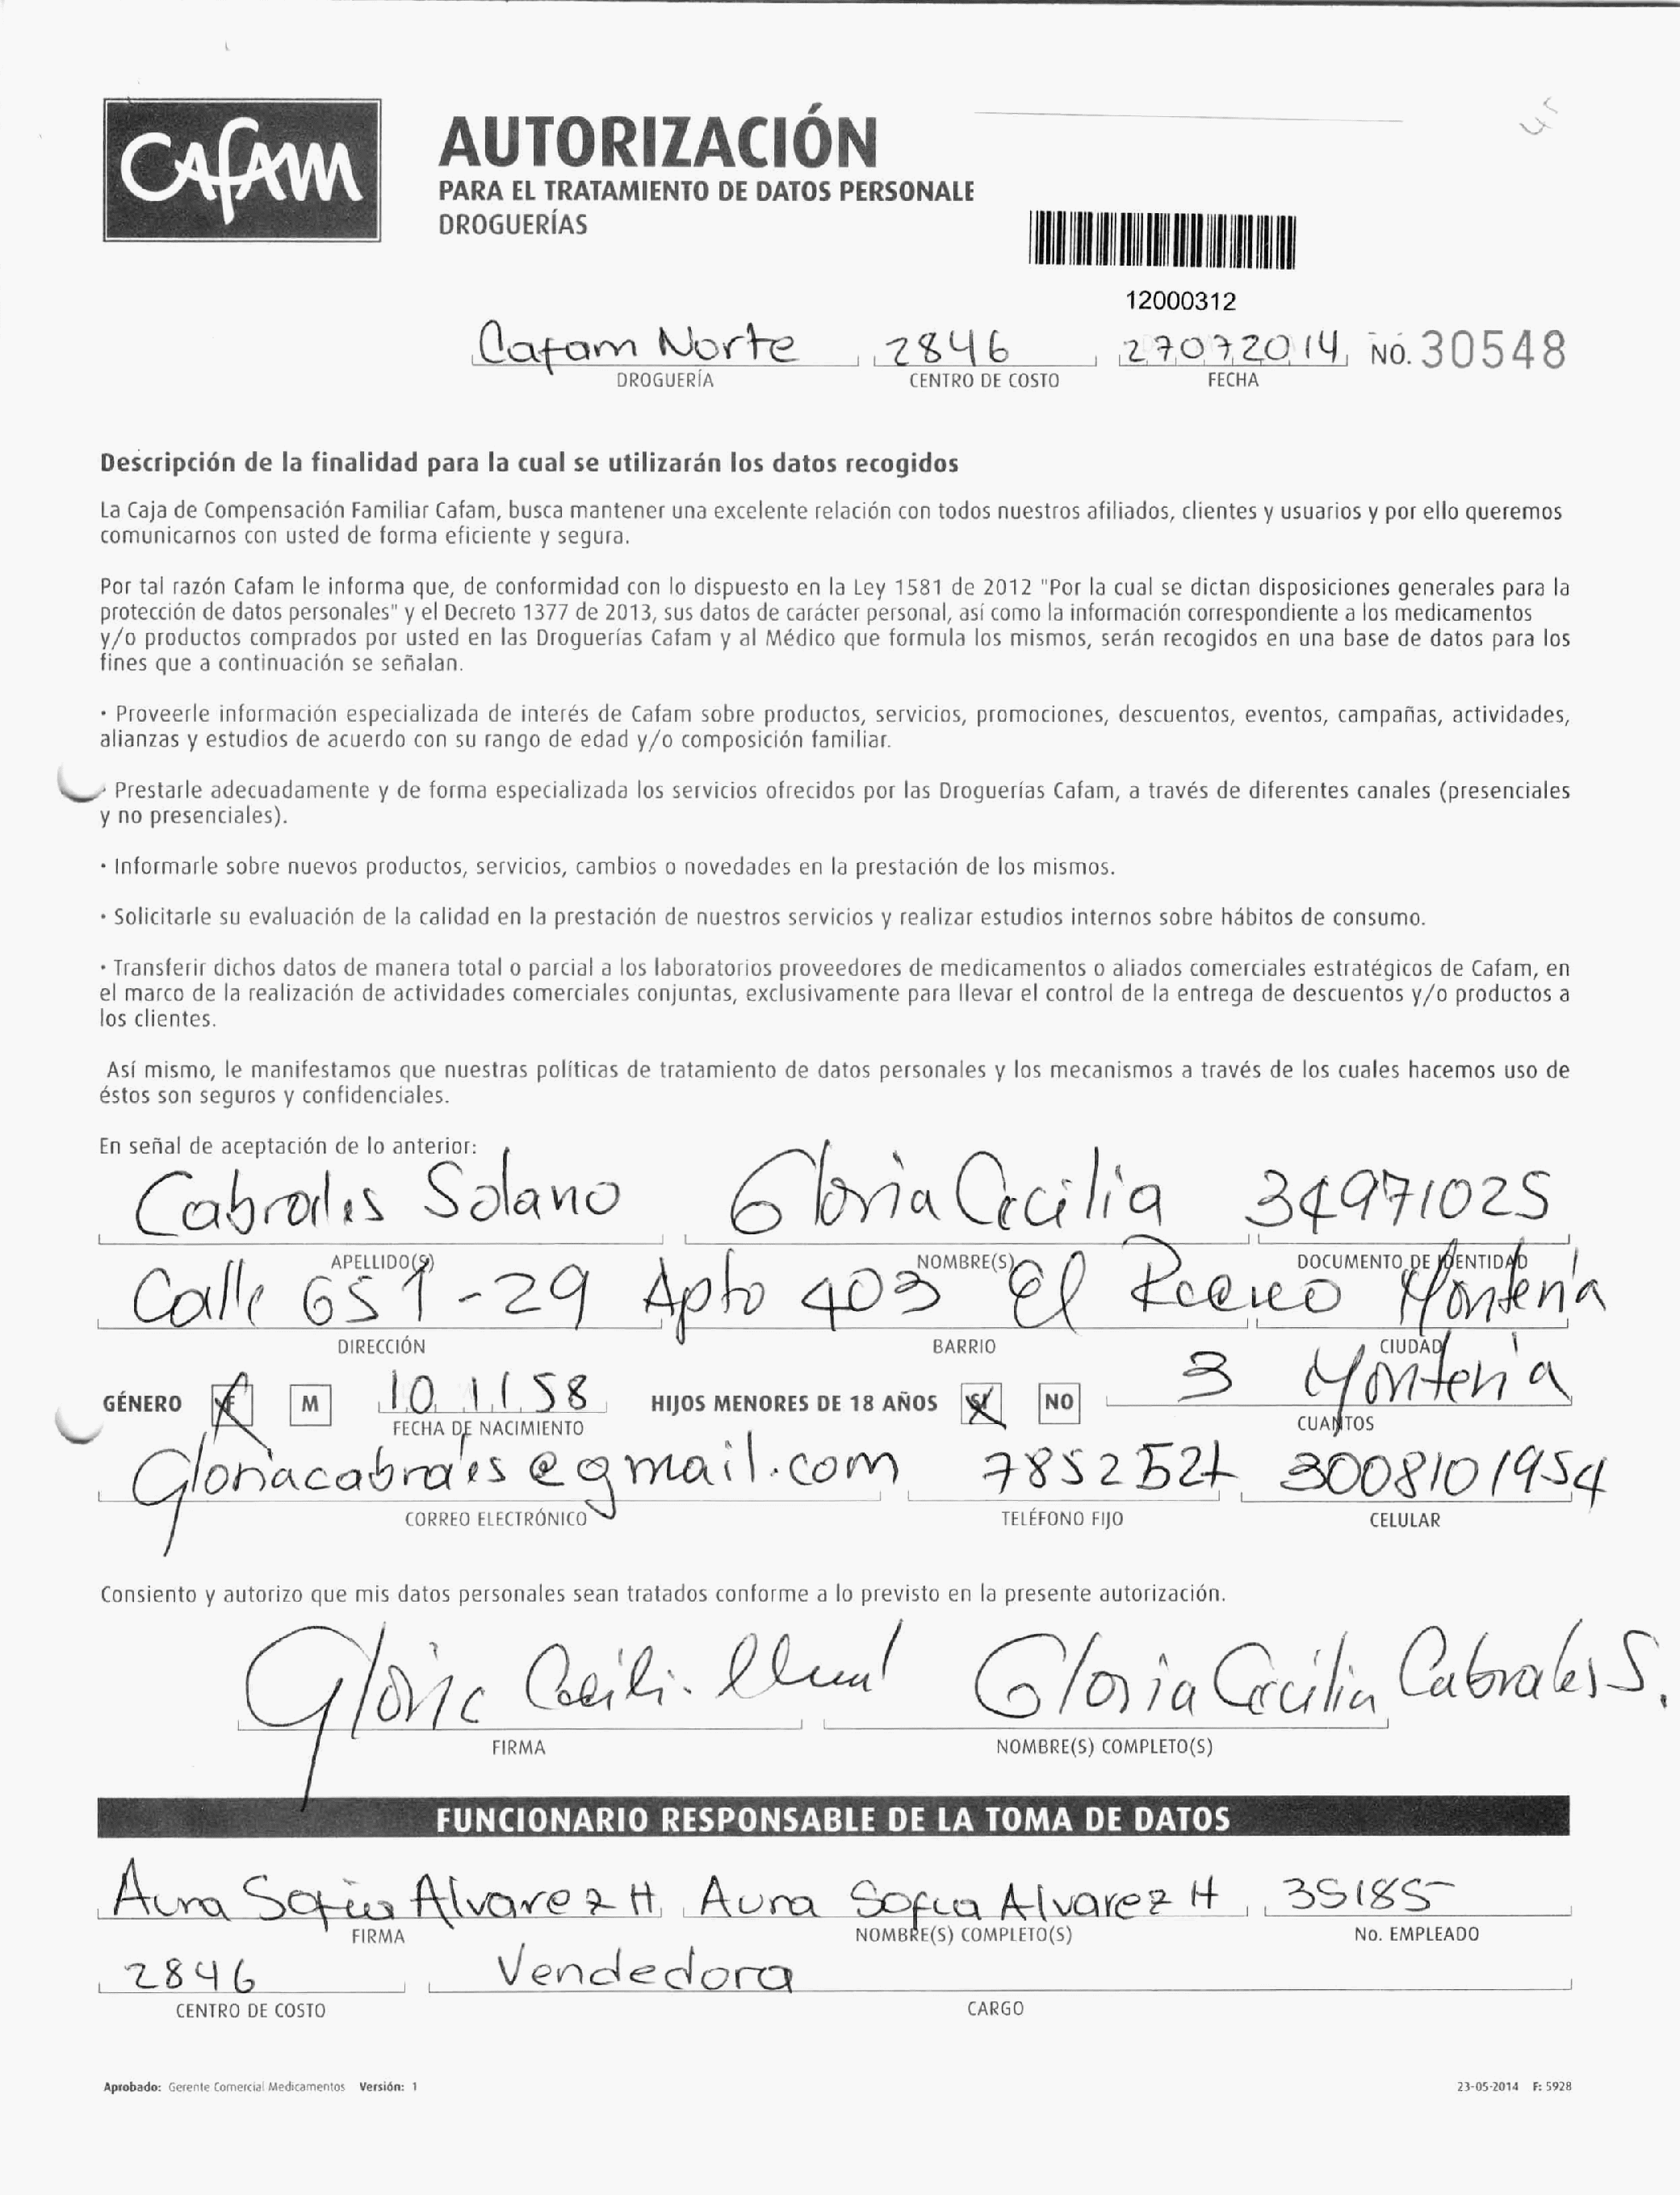 CAFAM
AUTORIZACIÓN
PARA EL TRATAMIENTO DE DATOS PERSONALE
DROGUERÍAS
12000312
Cafam Norte 2846 27072014 NO. 30548
DROGUERÍA CENTRO DE COSTO FECHA
Descripción de la finalidad para la cual se utilizarán los datos recogidos
La Caja de Compensación Familiar Cafam, busca mantener una excelente relación con todos nuestros afiliados, clientes y usuarios y por ello queremos
comunicarnos con usted de forma eficiente y segura.
Por tal razón Cafam le informa que, de conformidad con lo dispuesto en la Ley 1581 de 2012 "Por la cual se dictan disposiciones generales para la
protección de datos personales" y el Decreto 1377 de 2013, sus datos de carácter personal, así como la información correspondiente a los medicamentos
y/o productos comprados por usted en las Droguerías Cafam y al Médico que formula los mismos, serán recogidos en una base de datos para los
fines que a continuación se señalan.
· Proveerle información especializada de interés de Cafam sobre productos, servicios, promociones, descuentos, eventos, campañas, actividades,
alianzas y estudios de acuerdo con su rango de edad y/o composición familiar.
· Prestarle adecuadamente y de forma especializada los servicios ofrecidos por las Droguerías Cafam, a través de diferentes canales (presenciales
y no presenciales).
· Informarle sobre nuevos productos, servicios, cambios o novedades en la prestación de los mismos.
· Solicitarle su evaluación de la calidad en la prestación de nuestros servicios y realizar estudios internos sobre hábitos de consumo.
· Transferir dichos datos de manera total o parcial a los laboratorios proveedores de medicamentos o aliados comerciales estratégicos de Cafam, en
el marco de la realización de actividades comerciales conjuntas, exclusivamente para llevar el control de la entrega de descuentos y/o productos a
los clientes.
Así mismo, le manifestamos que nuestras políticas de tratamiento de datos personales y los mecanismos a través de los cuales hacemos uso de
éstos son seguros y confidenciales.
En señal de aceptación de lo anterior:
Cabrales Solano Gloria Cecilia 34971025
APELLIDO(S) NOMBRE(S) DOCUMENTO DE IDENTIDAD
Calle 65 1-29 Apto 403 El Recreo Montería
DIRECCIÓN BARRIO CIUDAD
GÉNERO F M 10 11 58 HIJOS MENORES DE 18 AÑOS SI NO 3 Montería
FECHA DE NACIMIENTO CUANTOS
Gloriacabrales@gmail.com 7852521 3008101954
CORREO ELECTRÓNICO TELÉFONO FIJO CELULAR
Consiento y autorizo que mis datos personales sean tratados conforme a lo previsto en la presente autorización.
Gloria Cecilia Gloria Cecilia Cabrales S.
FIRMA NOMBRE(S) COMPLETO(S)
FUNCIONARIO RESPONSABLE DE LA TOMA DE DATOS
Aura Sofia Alvarez H Aura Sofia Alvarez H 35185
FIRMA NOMBRE(S) COMPLETO(S) No. EMPLEADO
2846 Vendedora
CENTRO DE COSTO CARGO
Aprobado: Gerente Comercial Medicamentos Versión: 1 23-05-2014 F: 5928